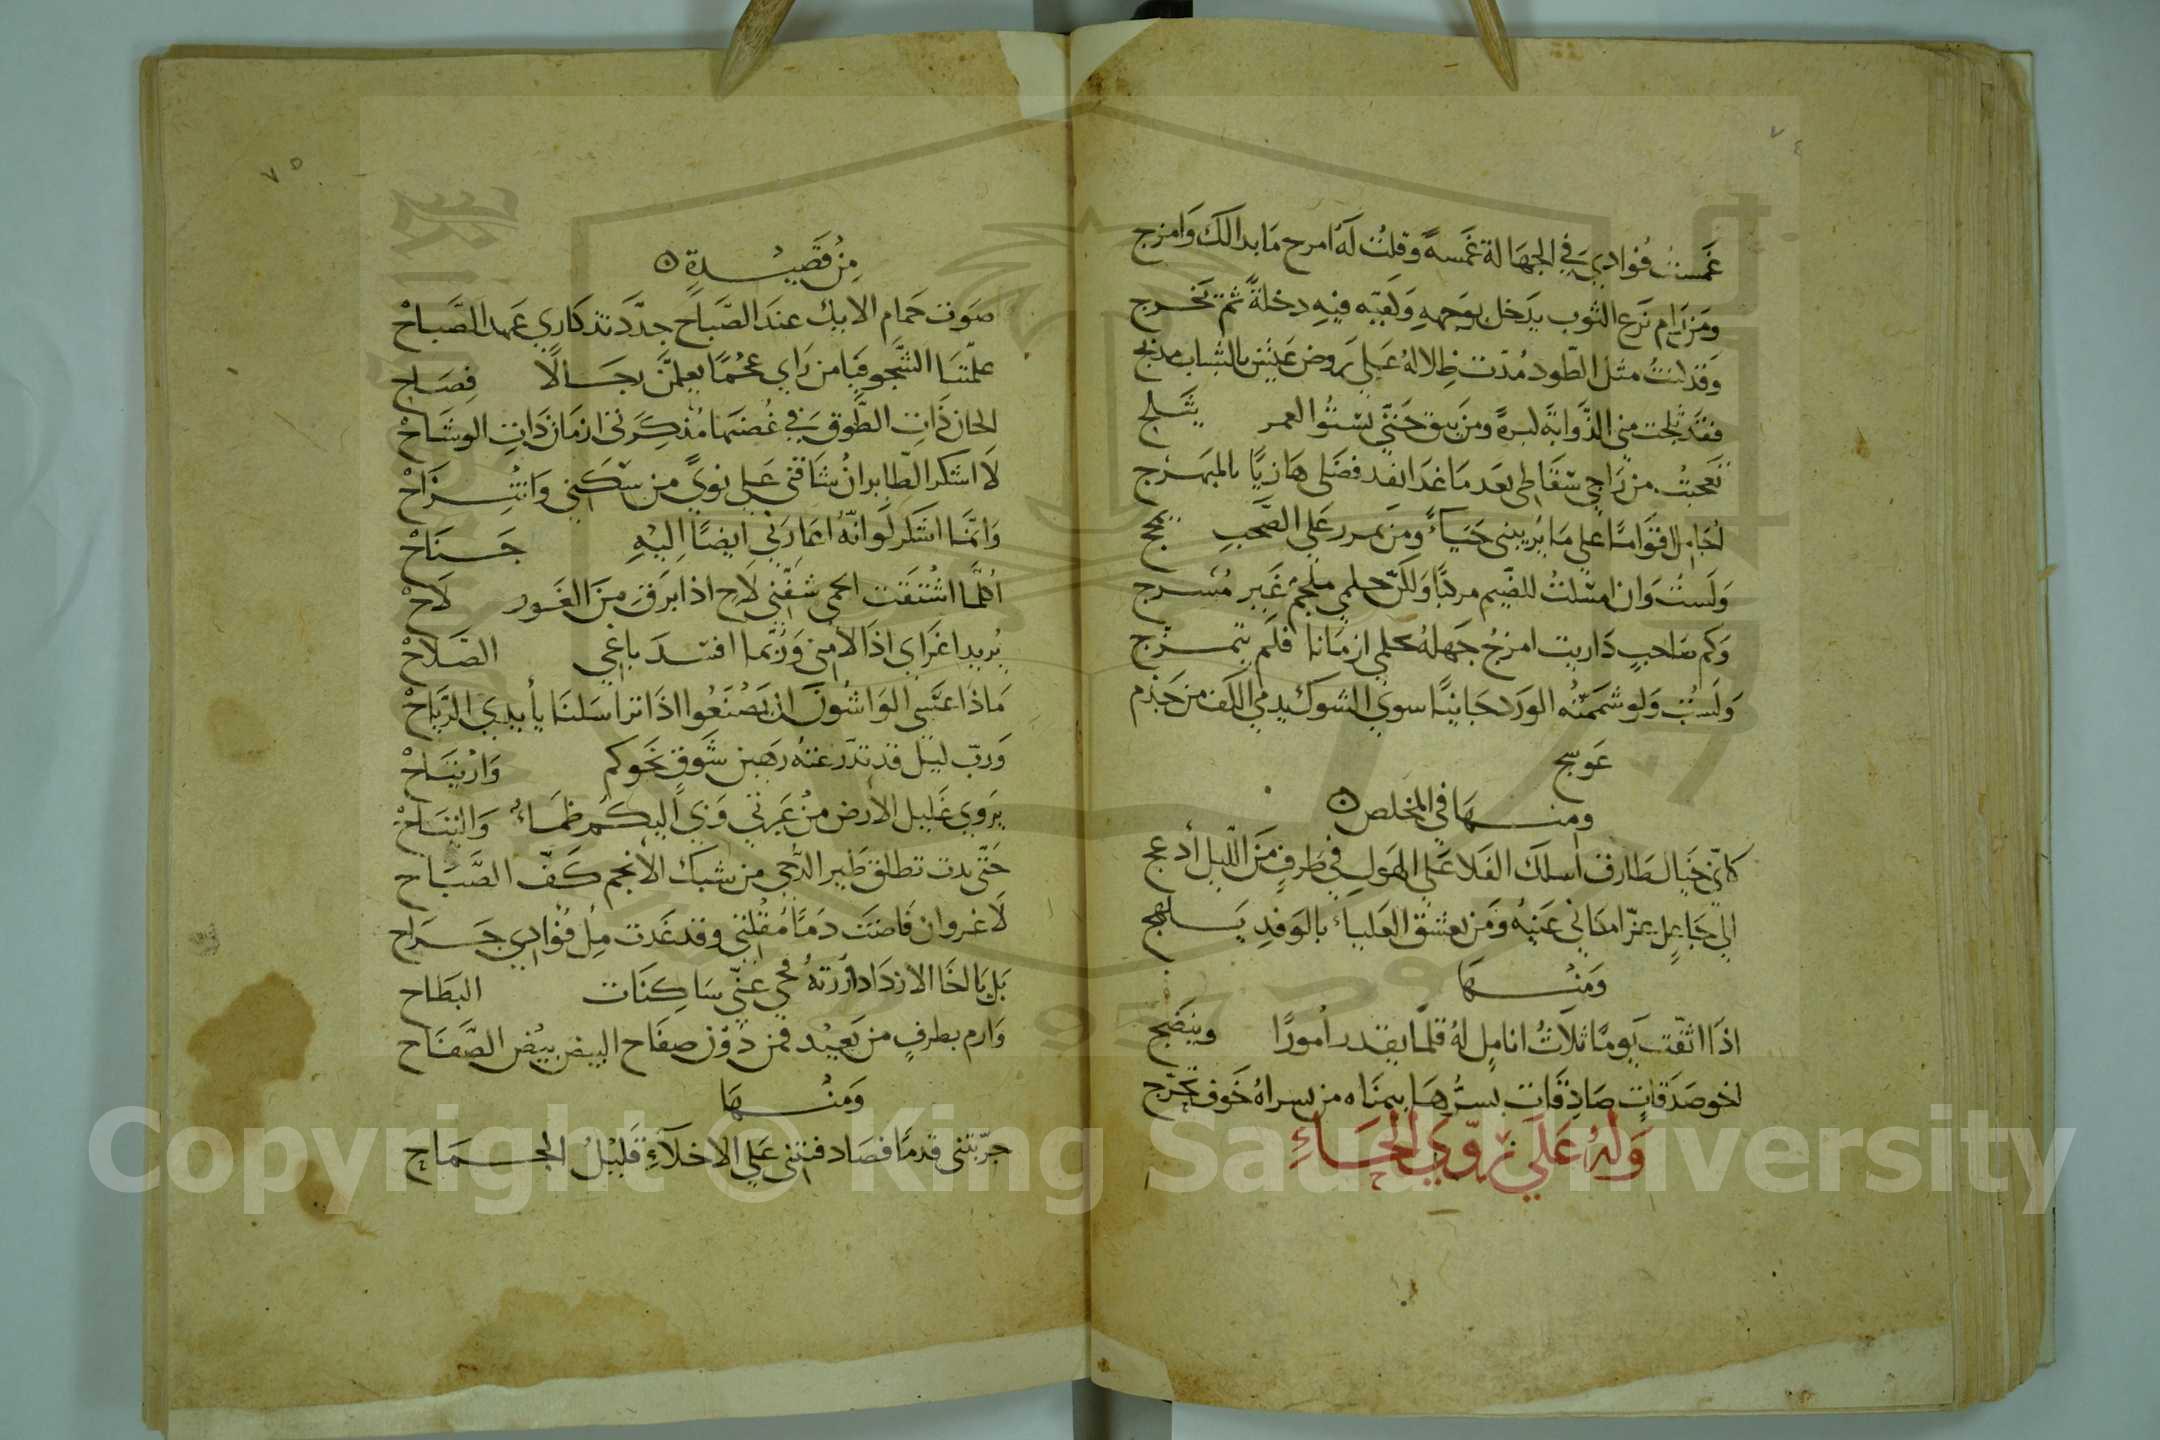 ٧٤
غمست فؤادي في الجهالة غمسةً وقلت له امرح ما بدا لك وامزج
ومن رام نزع الثوب يدخل بوجهه ولقيه فيه دخلةً ثم تخرج
وقد لنت مثل الطود مدت ظلاله على روض عيش بالشباب مدبج
فقد ثلجت مني الذوابة لبرهً ومن يبق حتى يشتو العمر يثلج
تعجبت من راجي سقاطي بعد ما غدا نقد فضلي هازيًا بالمبهرج
اجامل اقوامًا على ما يريبني حياءً ومن يمرر على الصحب يمجج
ولست وان امثلت للضيم مركبًا ولكن حلمي ملجم غير مسرج
وكم صاحب داريت امزج جهله بحلمي ازمانا فلم يتمزج
ولست ولو شممته الورد جانيًا سوى الشوك يدمي الكف من جذم
عوسج
ومنها في المخلص
كاني خيال طارق اسلك الفلا على الهول في طرف من الليل أدعج
الى جاعل يمزا مغاني عنيه ومن يعشق العلياء بالوفد يلهج
ومنها
اذا اتفقت يومًا ثلاث انامل له قلما يقدر امورًا وينضج
اخو صدقات صادقات يسرها بيمناه من يسراه خوف تحرج
وله على روي الحاء
٧٥
من قصيدة
صوت حمام الايك عند الصباح جدد تذكاري عهد الصباح
علمتنا الشجو فيا من راي عجمًا يعلمن رجالًا فصاح
الحان ذات الطوق في غصنها مذكرتى ازمان ذات الوشاح
لا اشكر الطاير ان شاقني على نوى من سكني وانتزاح
وانما اشكر لو انه اعارني ايضًا اليه جناح
اكلما اشتقت الحمى شفني لاح اذا برق من الغور لاح
يريد اغراي اذا لامني وربما افسد باغي الصلاح
ماذا عسى الواشون ان يصنعوا اذا تراسلنا بأيدي الرياح
ورب ليل قد تدرعته رهين شوق نحوكم وارتياح
يروي غليل الارض من عبرتي وبي اليكم ظماء والتياح
حتى بدت تطلق طير الدجى من شبك الانجم كف الصباح
لا غروان فاضت دمًا مقلتي وقد غدت مل فؤادي جراح
بل يا اخا الازد اذا زرته فحي عني ساكنات البطاح
وارم بطرف من بعيد فمن دون صفاح البيض بيض الصفاح
ومنها
جربتني قدمًا فصادفتني على الاخلاء قليل الجماح
Copyright © King Saud University